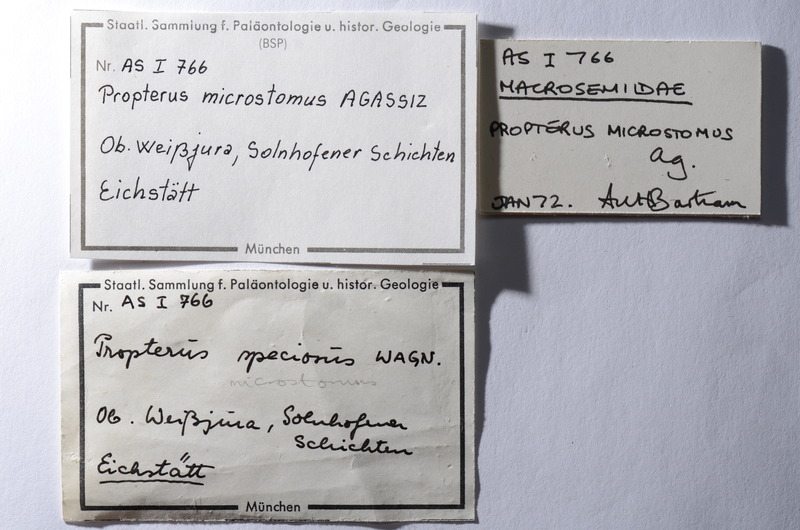 Staatl. Sammlung f. Paläontologie u. histor. Geologie
(BSP)
Nr. AS I 766
Propterus microstomus AGASSIZ
Ob. Weißjura, Solnhofener Schichten
Eichstätt
München
AS I 766
MACROSEMIIDAE
PROPTERUS MICROSTOMUS
Ag.
JAN 72. Bartram
Staatl. Sammlung f. Paläontologie u. histor. Geologie
Nr. AS I 766
Propterus speciosus WAGN.
microstomus
Ob. Weißjura, Solnhofener
Schichten
Eichstätt
München